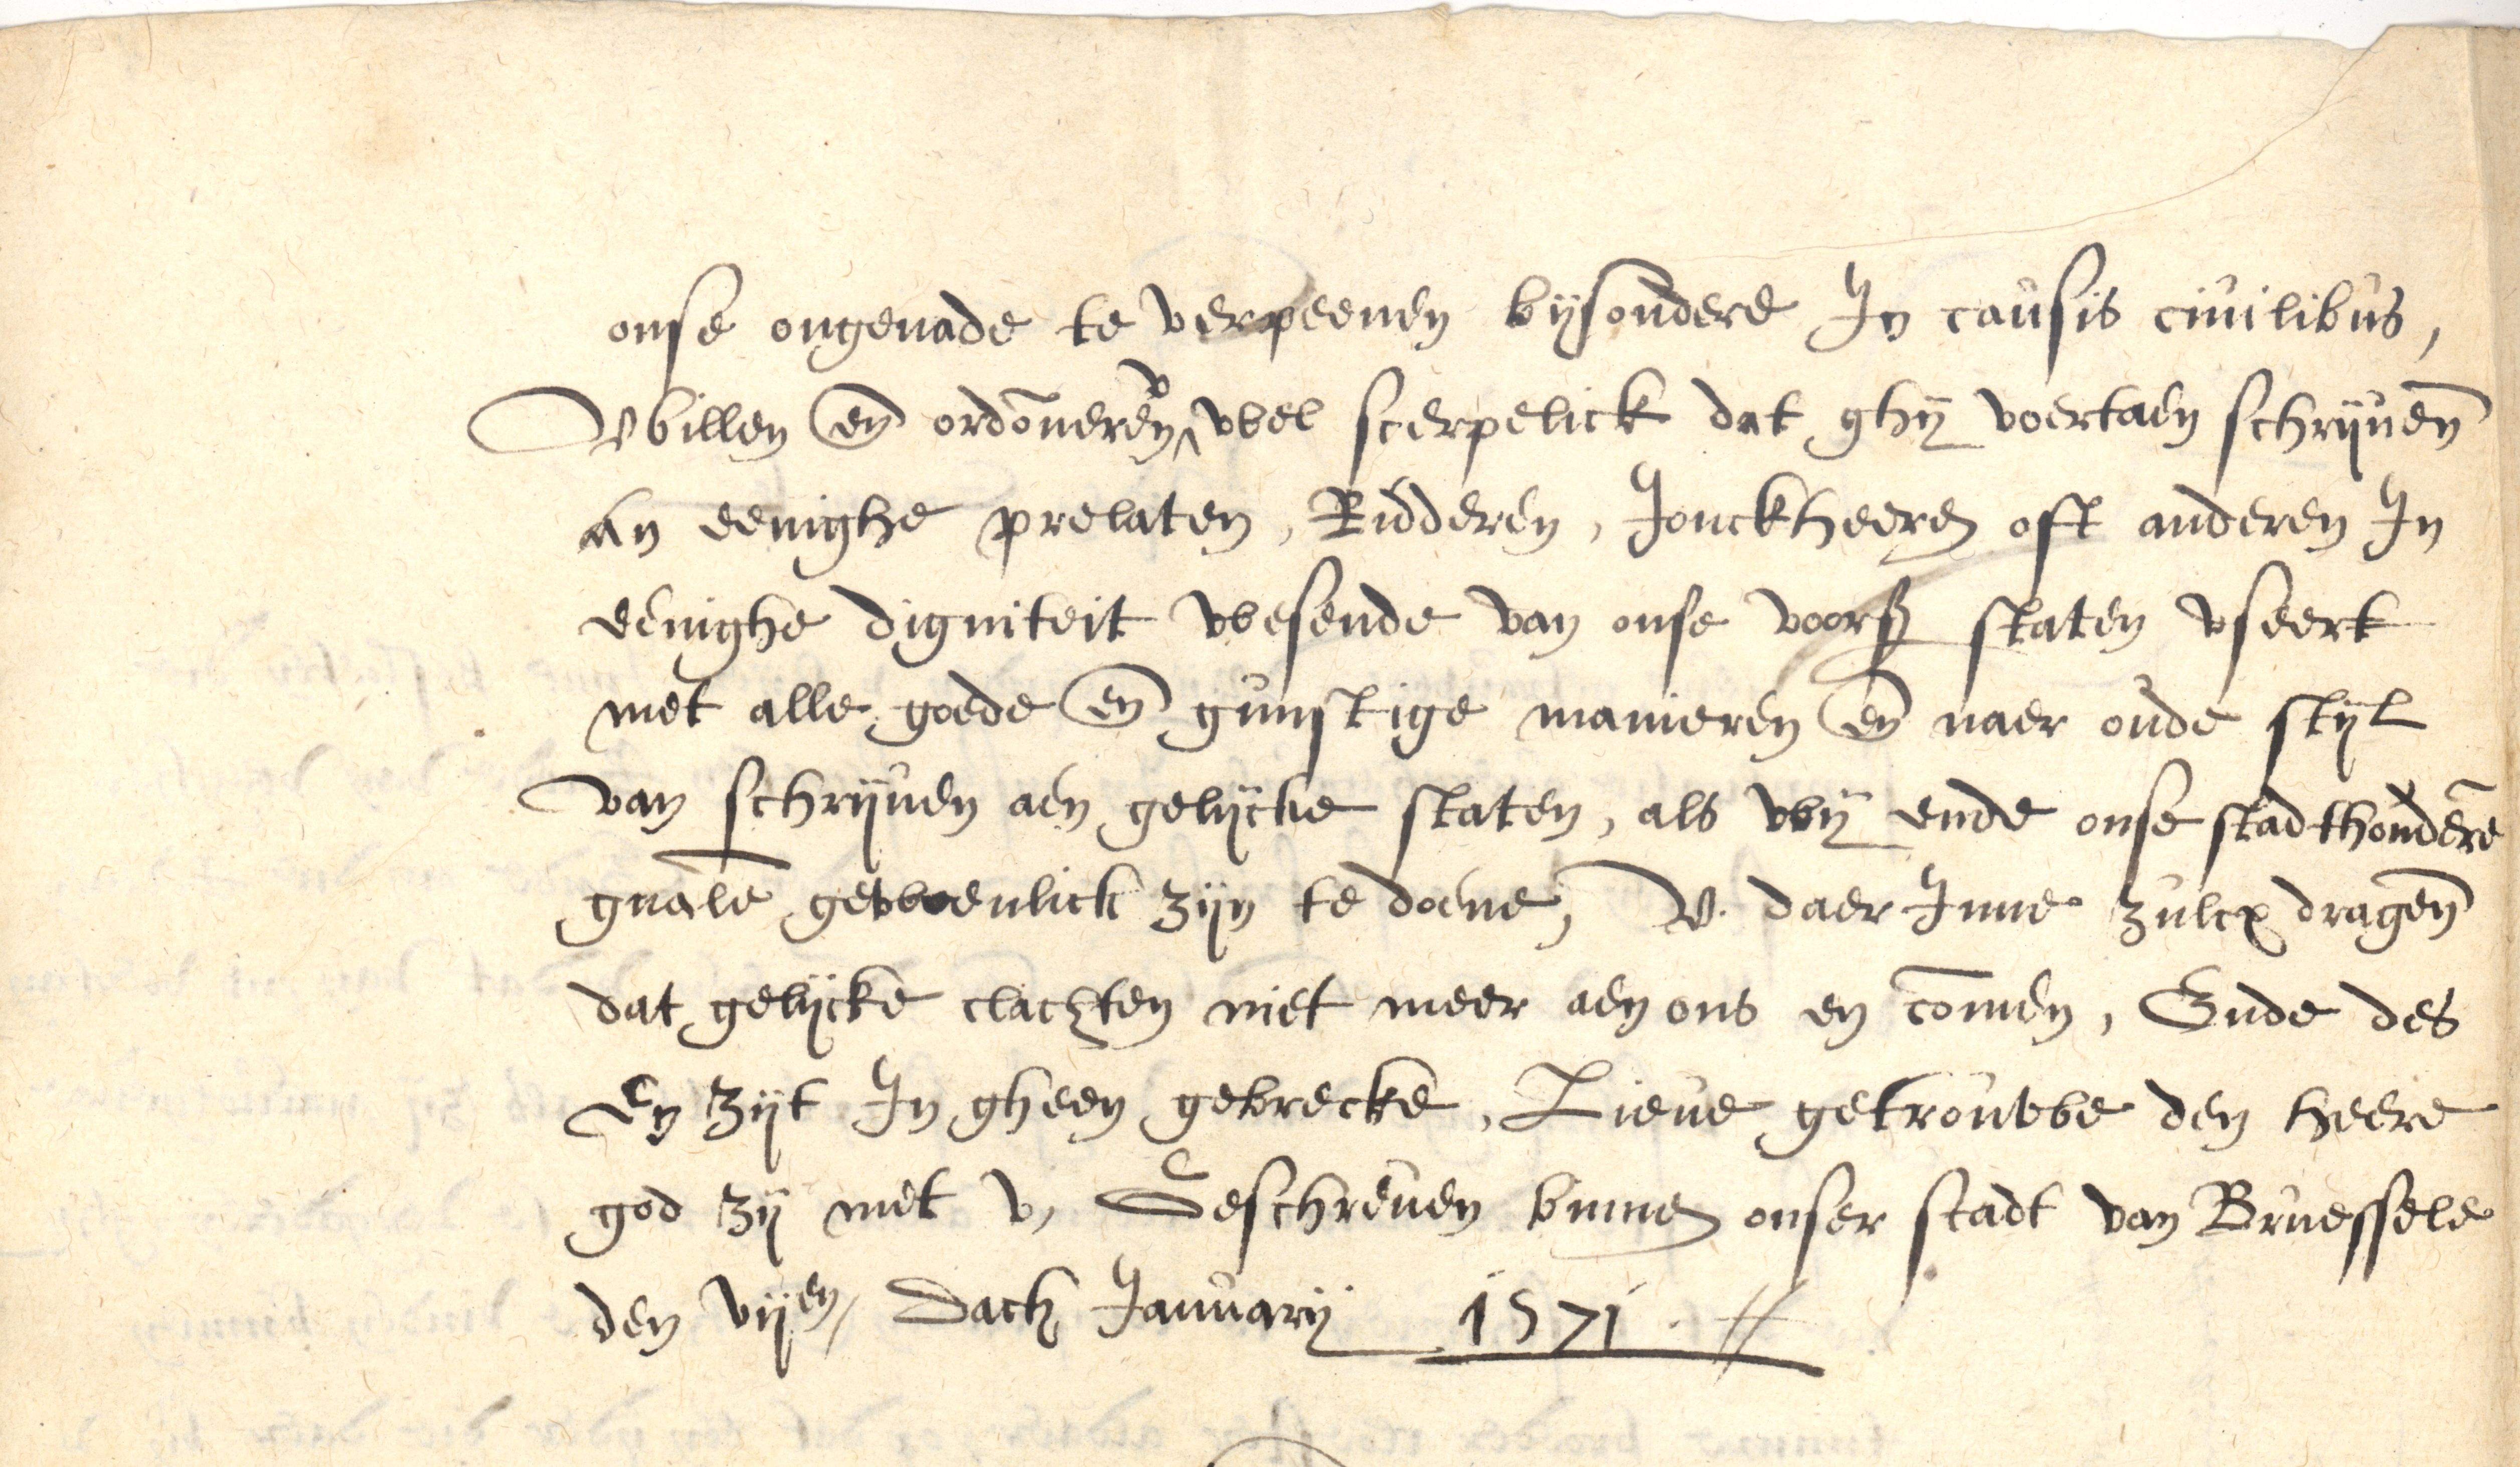 onse ongenade te verpeenen bijsondere In causis ciuilibus,
Willen en̄ ordōneren v wel scerpelick dat ghij voertaen schrijuen̄
An eenighe prelaten, Ridderen, Jonckheeren oft anderen In
eenighe digniteit wesende van onse voorß staten
met alle goede en̄ gunstige manieren en̄ naer oude stijl
van schrijuen aen gelijcke staten, als wij ende onse stadthoudere
gnāle gewoenlick zijn te doene, V. daer Inne zulcx dragen̄
dat gelijcke clachten niet meer aen ons en cōmen, Ende des
En zijt In gheen gebrecke, Lieue getrouwe den heere
god zij met v, Geschreuen binnen onser stadt van Bruessele
den vijen, Dach Januarij 1571 //